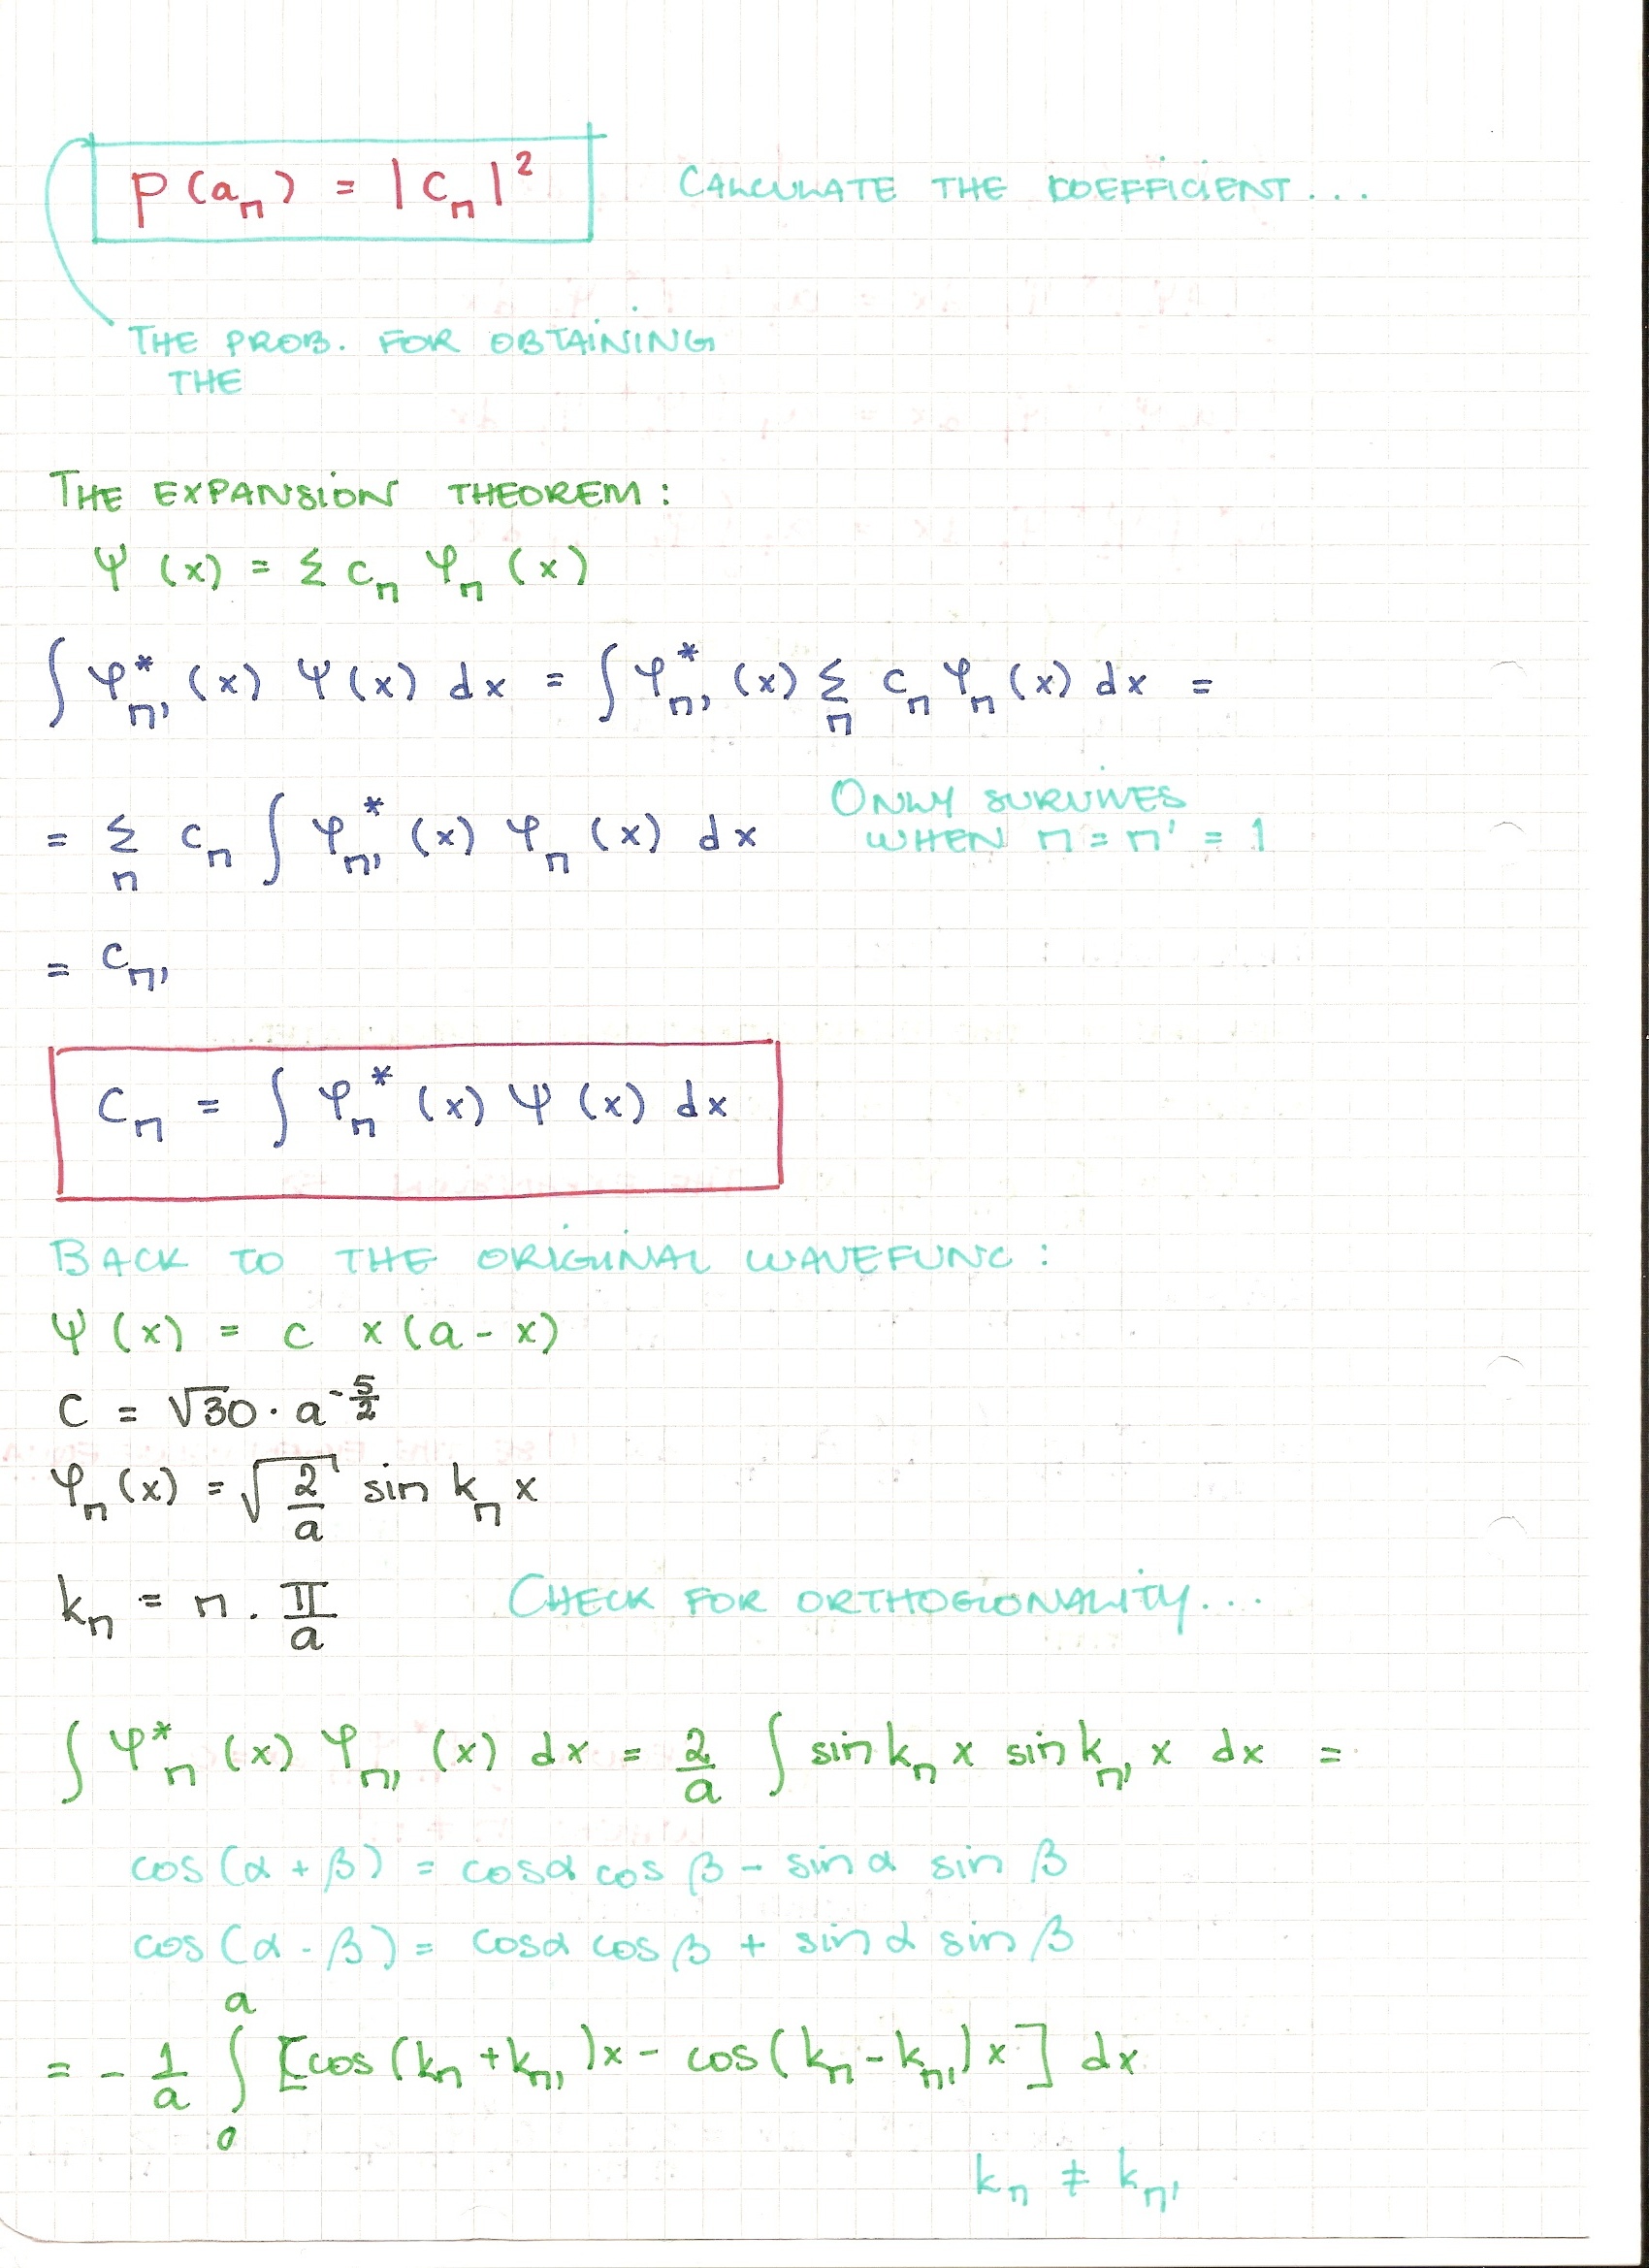 P(aₙ) = |cₙ|² CALCULATE THE COEFFICIENT...
THE PROB. FOR OBTAINING
THE
THE EXPANSION THEOREM:
Ψ(x) = Σ cₙ φₙ(x)
∫ φ*ₙ'(x) Ψ(x) dx = ∫ φ*ₙ'(x) Σₙ cₙ φₙ(x) dx =
= Σₙ cₙ ∫ φ*ₙ'(x) φₙ(x) dx ONLY SURVIVES
WHEN n = n' = 1
= cₙ'
cₙ = ∫ φₙ*(x) Ψ(x) dx
BACK TO THE ORIGINAL WAVEFUNC:
Ψ(x) = c x(a - x)
c = √30 · a^(-5/2)
φₙ(x) = √(2/a) sin kₙ x
kₙ = n · π/a CHECK FOR ORTHOGONALITY...
∫ φ*ₙ(x) φₙ'(x) dx = 2/a ∫ sin kₙ x sin kₙ' x dx =
cos(α + β) = cosα cos β - sin α sin β
cos(α - β) = cosα cos β + sin α sin β
= - 1/a ∫₀ᵃ [cos(kₙ + kₙ')x - cos(kₙ - kₙ')x] dx
kₙ ≠ kₙ'